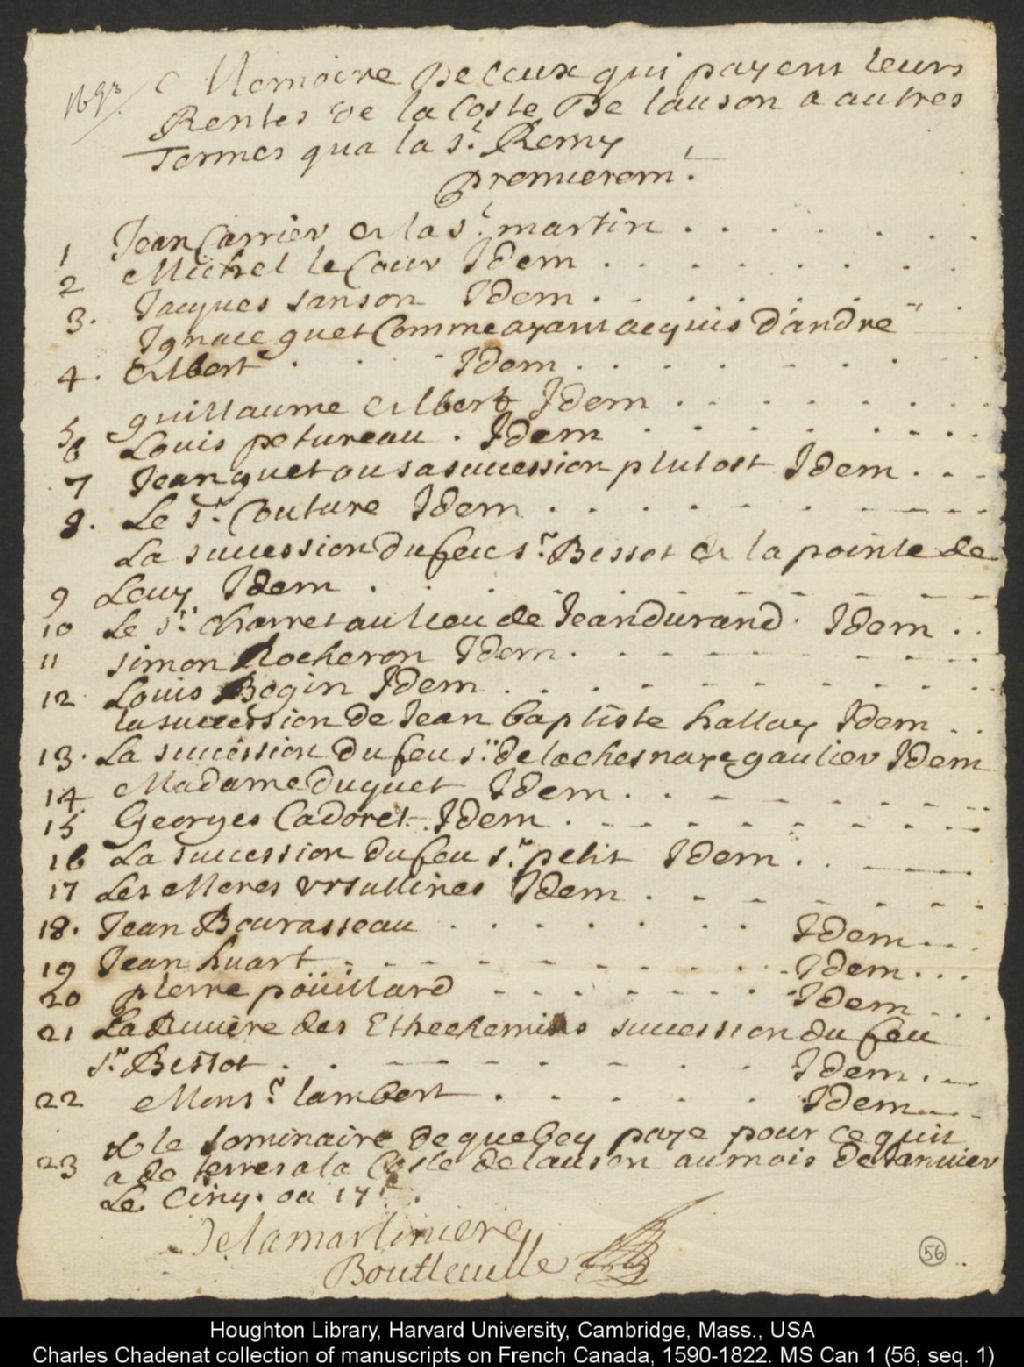 1693/.
Memoire De Ceux qui payent leurs
Rentes de la Coste De lauson a autres
Termes qua la st. Remy
premieremt.
1 Jean Carrier A la st. martin
2 Michel le Cour Idem
3. Jacques sanson Idem
Ignace guet Comme ayant acquis d'andre
4. Albert Idem
5 guillaume Albert Idem
6 Louis petureau . Idem
7 Jean guet ou sa succession plutost Idem
8. Le sr. Couture Idem
La succession Du feu sr. Bissot A la pointe de
9 Levy Idem
10 Le sr. charret au lieu de Jean Durand . Idem
11 simon Rocheron Idem
12 Louis Begin Idem
la succession de Jean baptiste hallay Idem
13. La succession Du feu sr. De lachesnaye gaultier Idem
14 Madame Duquet Idem
15 Georges Cadoret . Idem
16 La succession Du feu sr. petit Idem
17 Les Meres ursullines Idem
18. Jean Bourasseau Idem
19 Jean huart Idem
20 pierre poüillard Idem
21 La Riviere des Ethechemins succession du feu
sr. Bissot Idem
22 Monsr. lambert Idem
& le seminaire de quebey paye pour ce quil
23 a de terres a la Coste de lauson au mois de Janvier
Le Cinq. ou 17e.
Delamartiniere
Boutteville
56
Houghton Library, Harvard University, Cambridge, Mass., USA
Charles Chadenat collection of manuscripts on French Canada, 1590-1822. MS Can 1 (56, seq. 1)